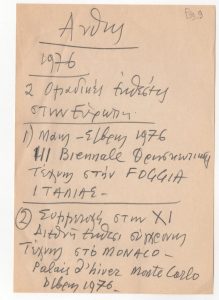 1976
2 Ομαδικές Εκθέσεις
στην Ευρώπη
1) Μάης - 1976
III Biennale Θρησκευτικής
Τέχνης στην FOGGIA
ΙΤΑΛΙΑΣ -
2) Συμμετοχή στην XI
Διεθνή Έκθεση σύγχρονης
Τέχνης στό MONACO -
Palais d'hiver Monte Carlo
1976 -